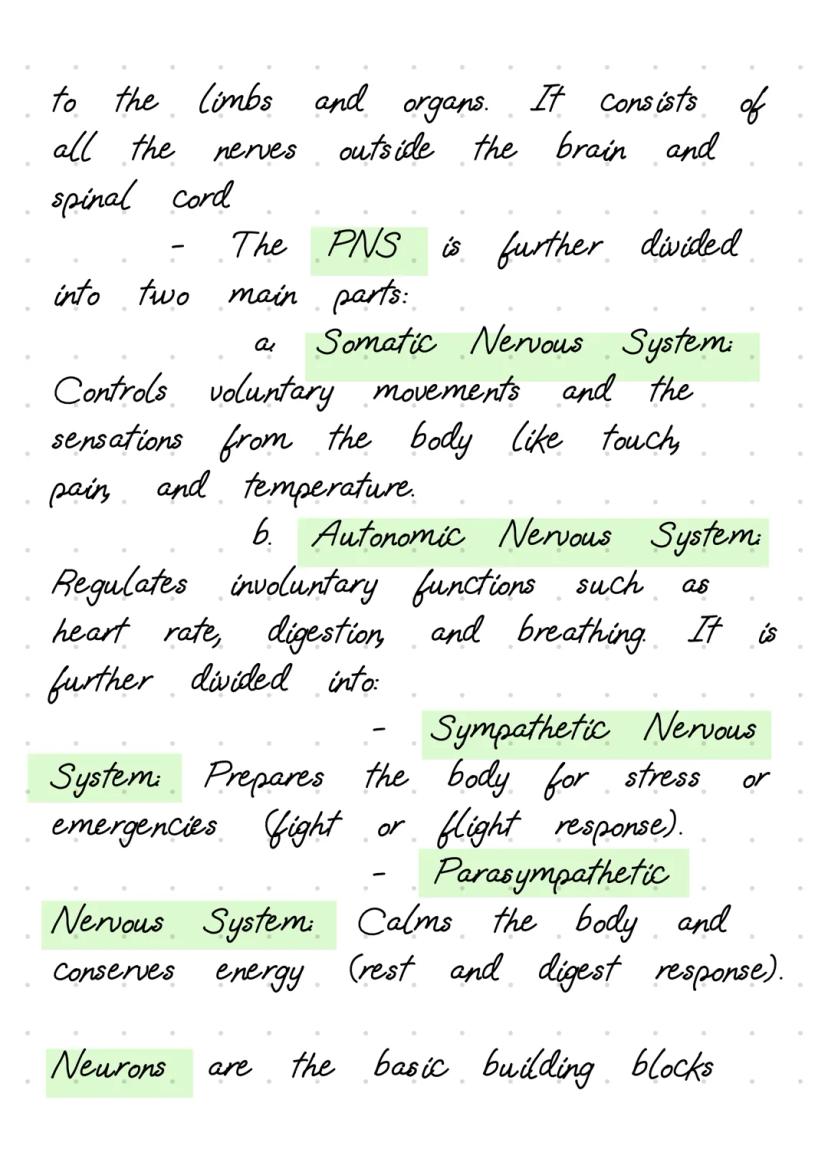 to the limbs and organs. It consists of
all the nerves outside the brain and
spinal cord
- The PNS is further divided
into two main parts:
a. Somatic Nervous System:
Controls voluntary movements and the
sensations from the body like touch,
pain, and temperature.
b. Autonomic Nervous System:
Regulates involuntary functions such as
heart rate, digestion, and breathing. It is
further divided into:
- Sympathetic Nervous
System: Prepares the body for stress or
emergencies (fight or flight response).
- Parasympathetic
Nervous System: Calms the body and
conserves energy (rest and digest response).
Neurons are the basic building blocks